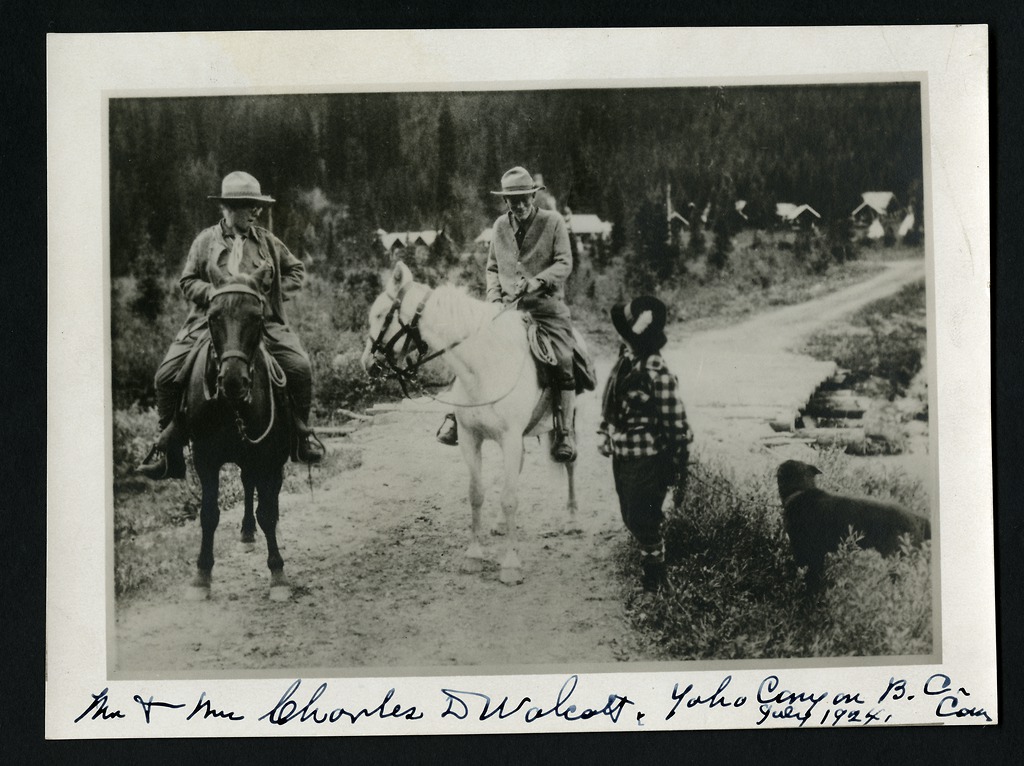 Mr & Mrs Charles D Walcott. Yoho Canyon B. C.
July 1924. Can